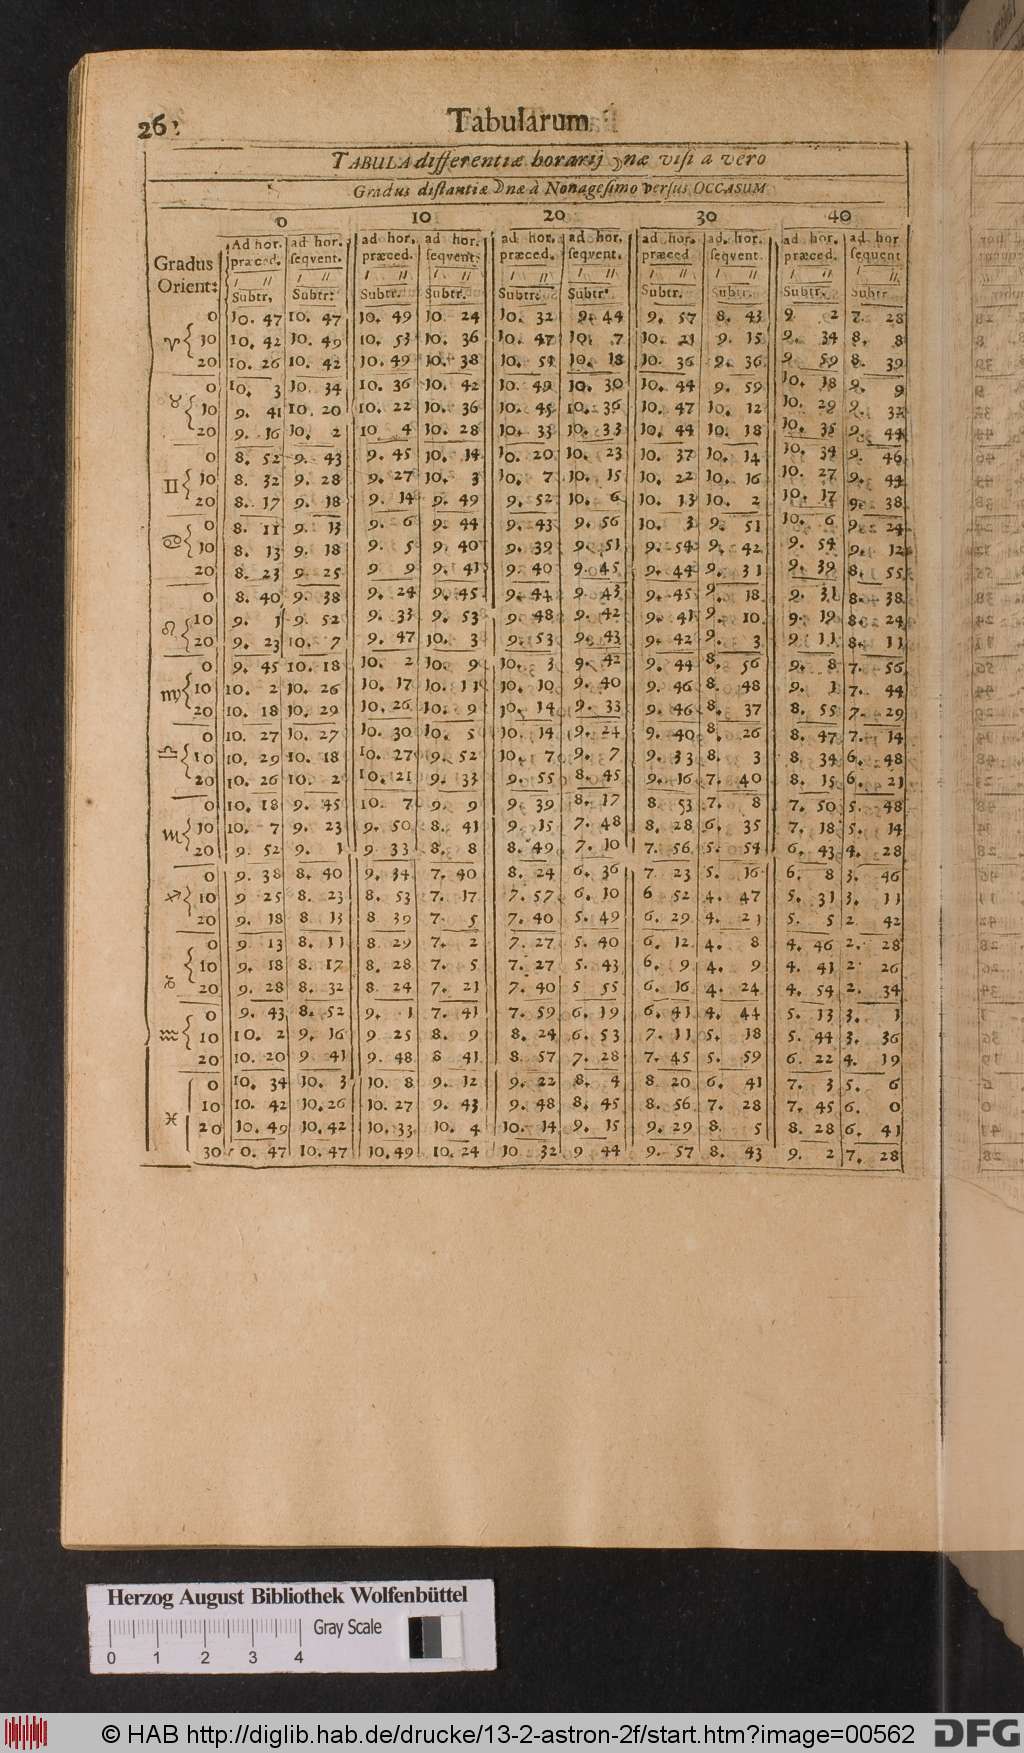 Tabularum
TABULA differentiæ horarij ☽næ visi a vero
Gradus distantiæ ☽næ à Nonagesimo versus OCCASUM
0 10 20 30 40
Gradus Orient: Ad hor. præced. ad hor. seqvent. ad hor. præced. ad hor. seqvent: ad hor. præced. ad hor. seqvent. ad hor. præced ad. hor. seqvent. ad hor. præced. ad. hor sequent
Subtr, Subtr: Subtr. Subtr. Subtr: Subtr. Subtr. Subtr. Subtr. Subtr
♈ 0 10. 47 10. 47 10. 49 10. 24 10. 32 9. 44 9. 57 8. 43 9. 2 7. 28
10 10. 42 10. 49 10. 53 10. 36 10. 47 10. 7 10. 21 9. 15 9. 34 8. 8
20 10. 26 10. 42 10. 49 10. 38 10. 51 10. 18 10. 36 9. 36 9. 59 8. 39
♉ 0 10. 3 10. 34 10. 36 10. 42 10. 49 10. 30 10. 44 9. 59 10. 18 9. 9
10 9. 41 10. 20 10. 22 10. 36 10. 45 10. 36 10. 47 10. 12 10. 29 9. 32
20 9. 16 10. 2 10 4 10. 28 10. 33 10. 33 10. 44 10. 18 10. 35 9. 44
♊ 0 8. 52 9. 43 9. 45 10. 14 10. 20 10. 23 10. 37 10. 14 10. 34 9. 46
10 8. 32 9. 28 9. 27 10. 3 10. 7 10. 15 10. 22 10. 16 10. 27 9. 44
20 8. 17 9. 18 9. 14 9. 49 9. 52 10. 6 10. 13 10. 2 10. 17 9. 38
♋ 0 8. 11 9. 13 9. 6 9. 44 9. 43 9. 56 10. 3 9. 51 10. 6 9. 24
10 8. 13 9. 18 9. 5 9. 40 9. 39 9. 51 9. 54 9. 42 9. 54 9. 12
20 8. 23 9. 25 9 9 9. 41 9. 40 9. 45 9. 44 9. 31 9. 39 8. 55
♌ 0 8. 40 9. 38 9. 24 9. 45 9. 44 9. 43 9. 45 9. 18 9. 31 8. 38
10 9. 1 9. 52 9. 33 9. 53 9. 48 9. 42 9. 41 9. 10 9. 19 8. 24
20 9. 23 10. 7 9. 47 10. 3 9. 53 9. 43 9. 42 9. 3 9. 11 8. 11
♍ 0 9. 45 10. 18 10. 2 10. 9 10. 3 9. 42 9. 44 8. 56 9. 8 7. 56
10 10. 2 10. 26 10. 17 10. 11 10. 10 9. 40 9. 46 8. 48 9. 1 7. 44
20 10. 18 10. 29 10. 26 10. 9 10. 14 9. 33 9. 46 8. 37 8. 55 7. 29
♎ 0 10. 27 10. 27 10. 30 10. 5 10. 14 9. 24 9. 40 8. 26 8. 47 7. 14
10 10. 29 10. 18 10. 27 9. 52 10. 7 9. 7 9. 33 8. 3 8. 34 6. 48
20 10. 26 10. 2 10. 21 9. 33 9. 55 8. 45 9. 16 7. 40 8. 15 6. 21
♏ 0 10. 18 9. 45 10. 7 9. 9 9. 39 8. 17 8. 53 7. 8 7. 50 5. 48
10 10. 7 9. 23 9. 50 8. 41 9. 15 7. 48 8. 28 6. 35 7. 18 5. 14
20 9. 52 9. 1 9 33 8. 8 8. 49 7. 10 7. 56 5. 54 6. 43 4. 28
♐ 0 9. 38 8. 40 9. 34 7. 40 8. 24 6. 36 7 23 5. 16 6. 8 3. 46
10 9 25 8. 23 8. 53 7. 17 7. 57 6. 10 6 52 4. 47 5. 31 3. 11
20 9. 18 8. 13 8 39 7. 5 7. 40 5. 49 6. 29 4. 21 5. 5 2. 42
♑ 0 9 13 8. 11 8 29 7. 2 7. 27 5. 40 6. 12 4. 8 4. 46 2. 28
10 9. 18 8. 17 8. 28 7. 5 7. 27 5. 43 6. 9 4. 9 4. 41 2 26
20 9. 28 8. 32 8 24 7. 21 7. 40 5 55 6. 16 4. 24 4. 54 2. 34
♒ 0 9. 43 8. 52 9. 1 7. 41 7. 59 6. 19 6. 41 4. 44 5. 13 3. 1
10 10. 2 9. 16 9 25 8. 9 8. 24 6. 53 7. 11 5. 18 5. 44 3. 36
20 10. 20 9 41 9. 48 8 41 8. 57 7. 28 7. 45 5. 59 6. 22 4. 19
♓ 0 10. 34 10. 3 10. 8 9. 12 9. 22 8. 4 8 20 6. 41 7. 3 5. 6
10 10. 42 10. 26 10. 27 9. 43 9. 48 8. 45 8. 56 7. 28 7. 45 6. 0
20 10. 49 10. 42 10. 33 10. 4 10. 14 9. 15 9. 29 8. 5 8. 28 6. 41
30 0. 47 10. 47 10. 49 10. 24 10 32 9 44 9. 57 8. 43 9. 2 7. 28
Herzog August Bibliothek Wolfenbüttel
Gray Scale
0 1 2 3 4
© HAB http://diglib.hab.de/drucke/13-2-astron-2f/start.htm?image=00562
DFG